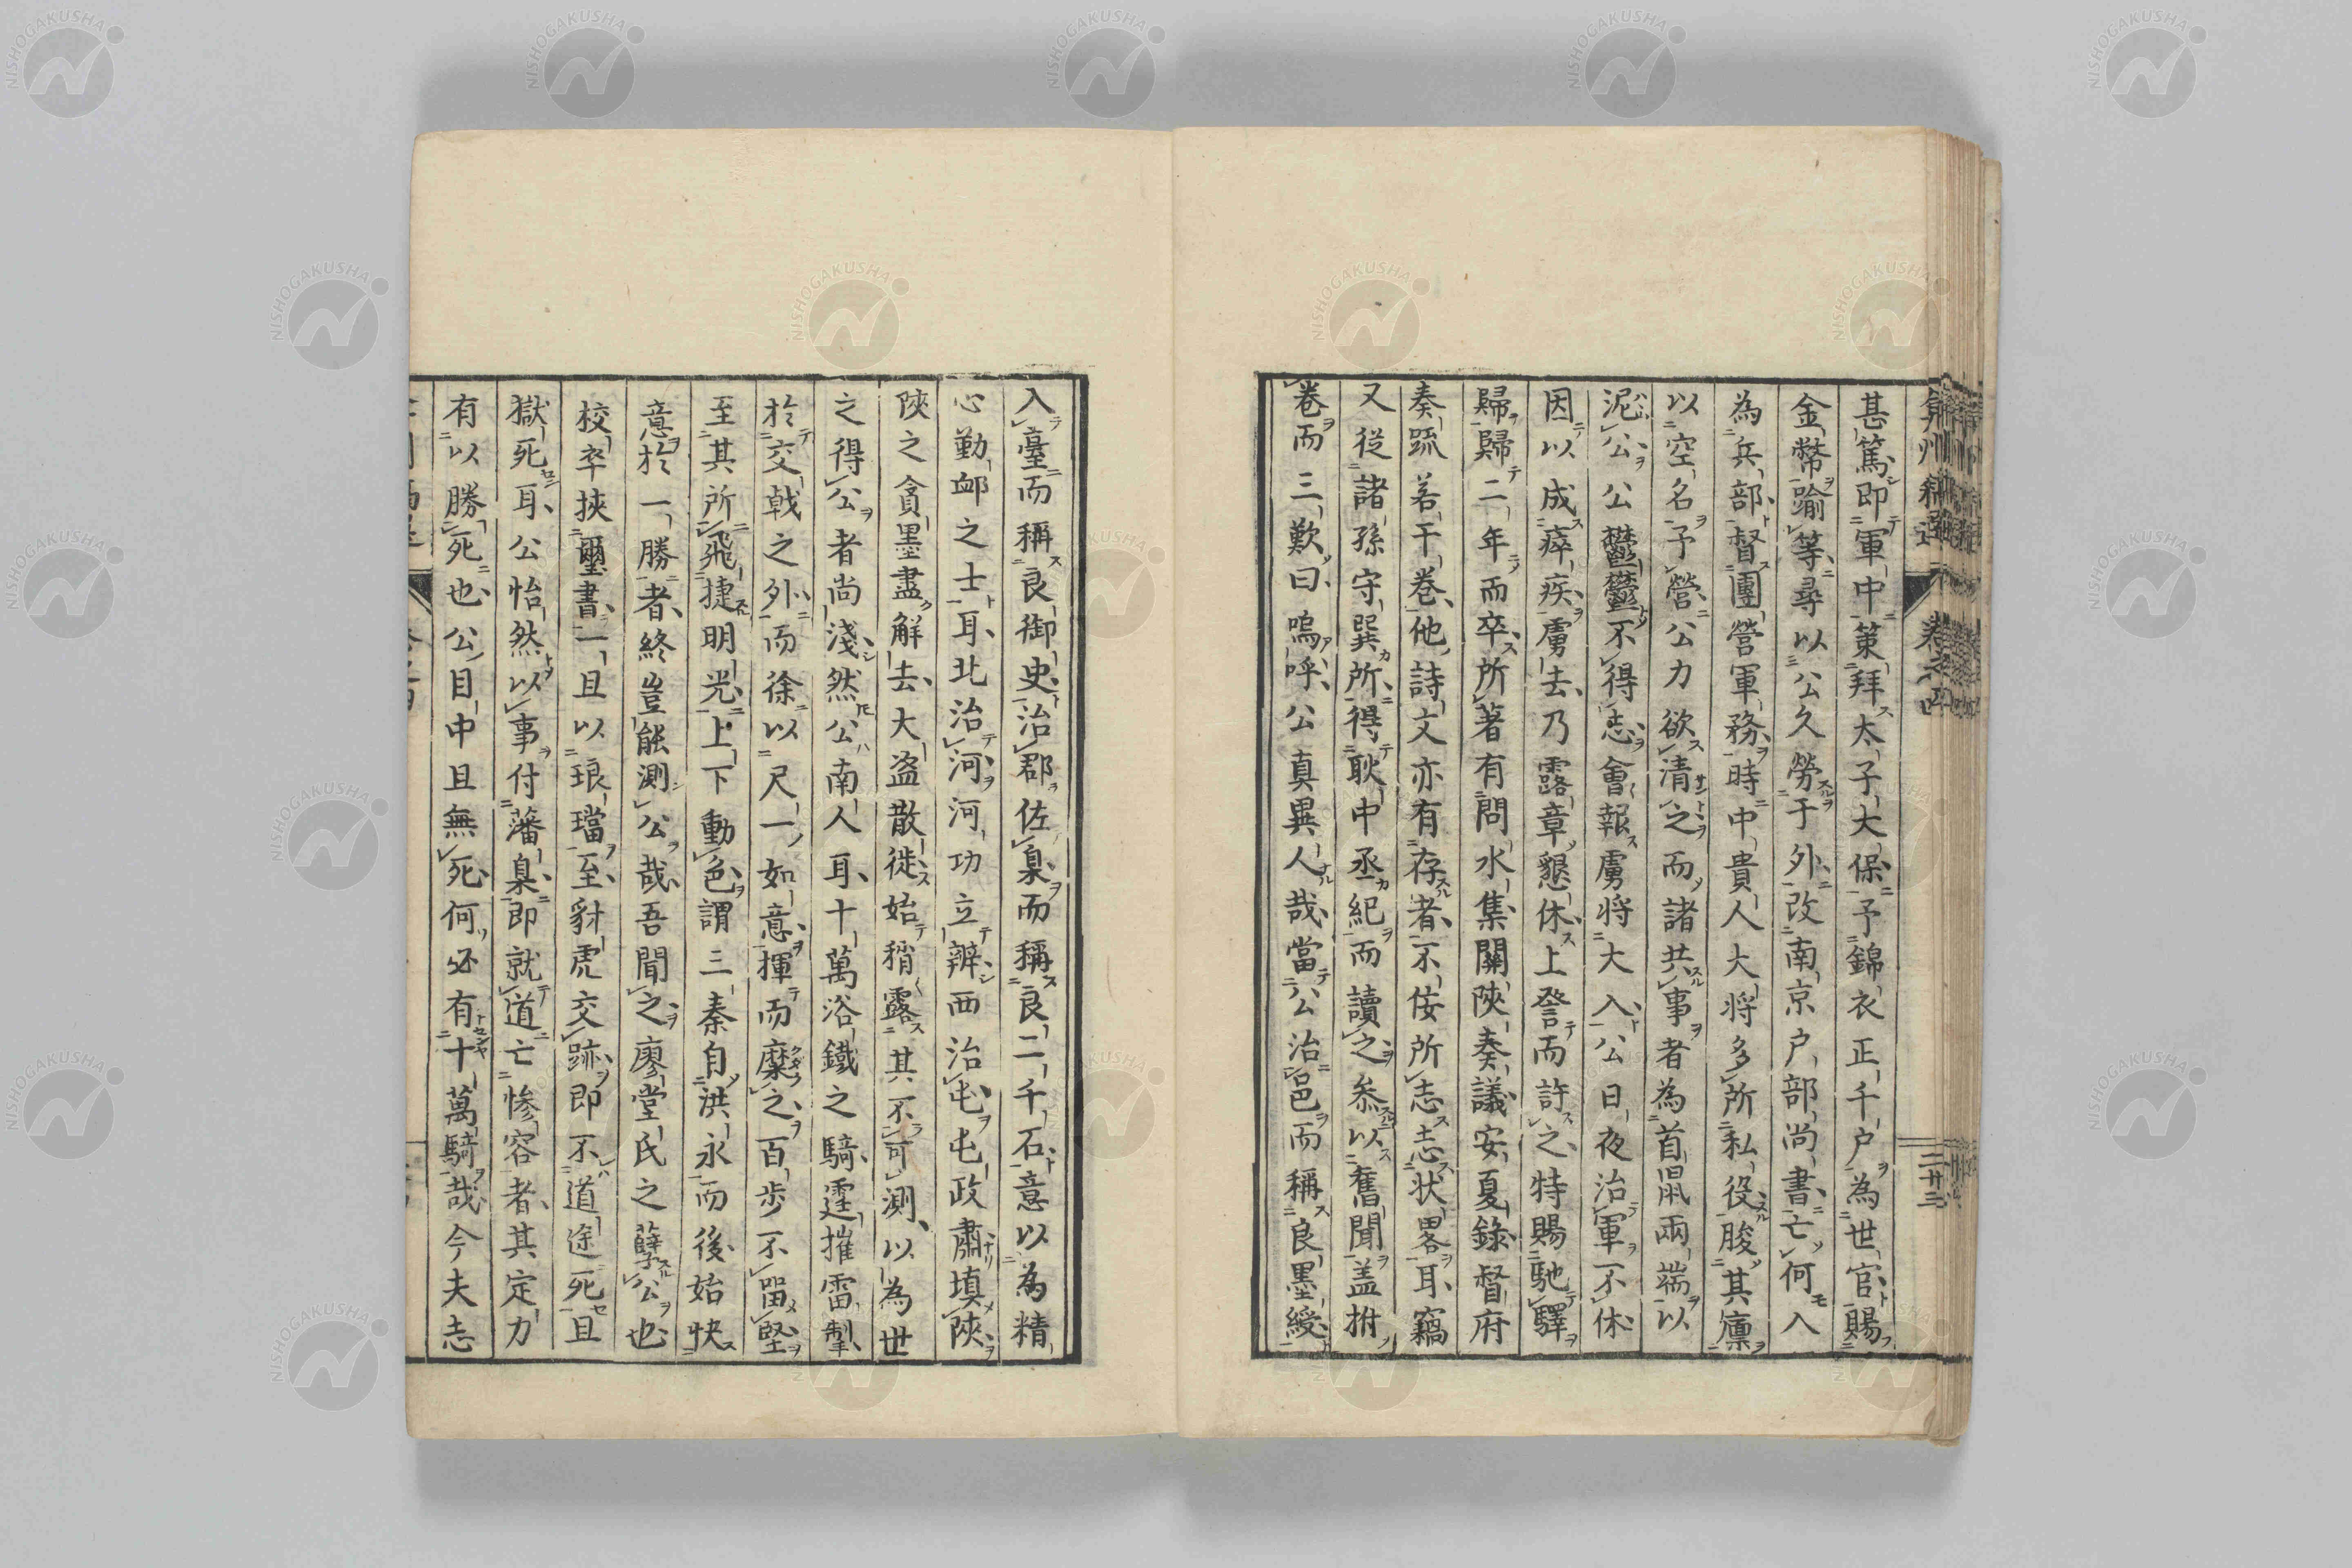 甚篤即軍中策拜太子大保予錦衣正千戶為世官賜
金幣踰等尋以公久勞于外改南京戶部尚書亡何入
為兵部督團營軍務時中貴人大将多所私役朘其廩
以空名予營公力欲清之而諸共事者為首鼠兩端以
泥公公鬱鬱不得志會報虜将大入公日夜治軍不休
因以成瘁疾虜去乃露章懇休上詧而許之特賜馳驛
歸歸二年而卒所著有問水集關陝奏議安夏錄督府
奏疏若干卷他詩文亦有存者不佞所志志状畧耳竊
又從諸孫守巽所得耿中丞紀而讀之叅以舊聞盖拊
卷而三歎曰嗚呼公真異人哉當公治邑而稱良墨綬
入臺而稱良御史治郡佐臬而稱良二千石意以為精
心勤䘏之士耳北治河河功立辦西治屯屯政肅填陝
陝之貪墨盡解去大盗散徙始稍露其不可測以為世
之得公者尚淺然公南人耳十萬浴鐵之騎霆摧雷掣
於交戟之外而徐以尺一如意揮而糜之百步不留堅
至其所飛捷明光上下動色謂三秦自洪永而後始快
意於一勝者終豈能測公哉吾聞之廖堂氏之孽公也
校卒挾璽書一且以琅璫至豺虎交跡即不道途死且
獄死耳公怡然以事付藩臬即就道亡惨容者其定力
有以勝死也公目中且無死何必有十萬騎哉今夫志
弇州稿選 卷之四